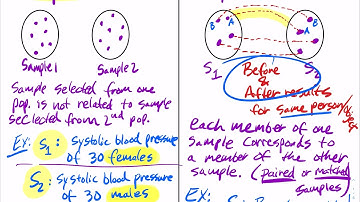 Sample 1 Sample 2
Sample selected from one
pop. is not related to sample
selected from 2nd pop.
Ex: S1: Systolic blood pressure
of 30 females
S2: Systolic blood pressure
of 30 males
B A A B
S1 S2
Before
&
After results
for same person/
Each member of one
Sample corresponds to
a member of the other
sample. (Paired or matched
samples)
Ex: